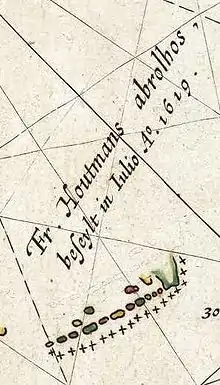 Fr. Houtmans abrolhos,
beseylt in Iulio A.º 1619.
30